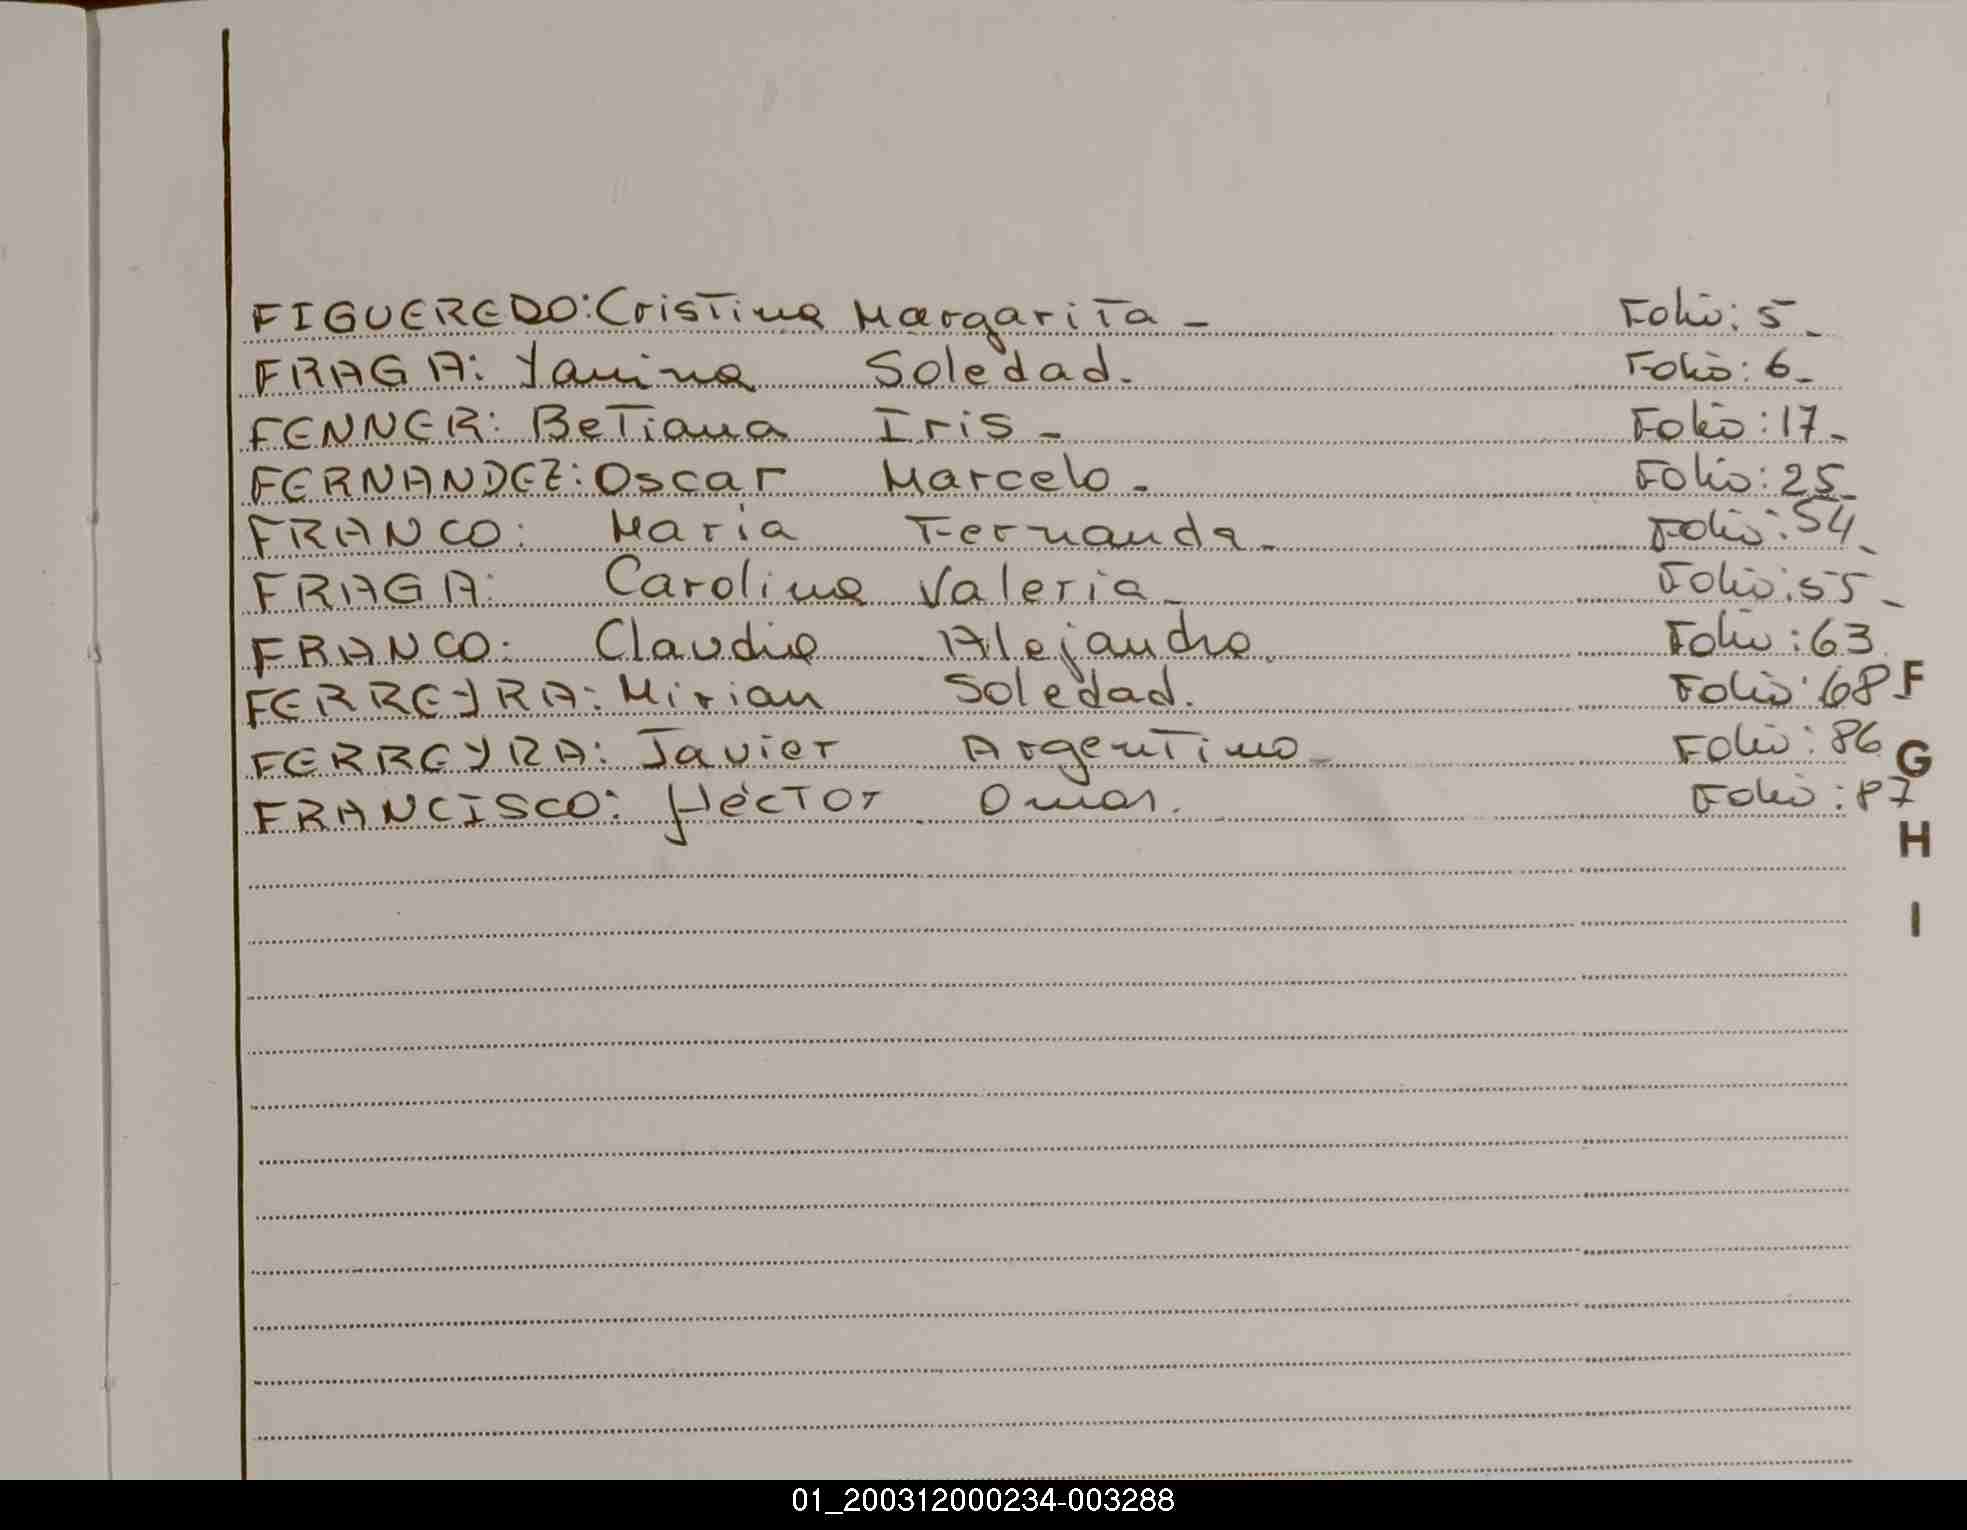 FIGUEREDO: Cristina Margarita - Folio: 5-
FRAGA: Yanina Soledad. Folio: 6-
FENNER: Betiana Iris - Folio: 17-
FERNANDEZ: Oscar Marcelo - Folio: 25-
FRANCO: Maria Fernanda - Folio: 54-
FRAGA: Carolina Valeria - Folio: 55-
FRANCO: Claudio Alejandro. Folio: 63
FERREYRA: Mirian Soledad. Folio: 68
F
FERREYRA: Javier Argentino - Folio: 86
G
FRANCISCO: Héctor Omar. Folio: 87
H
I
01_200312000234-003288